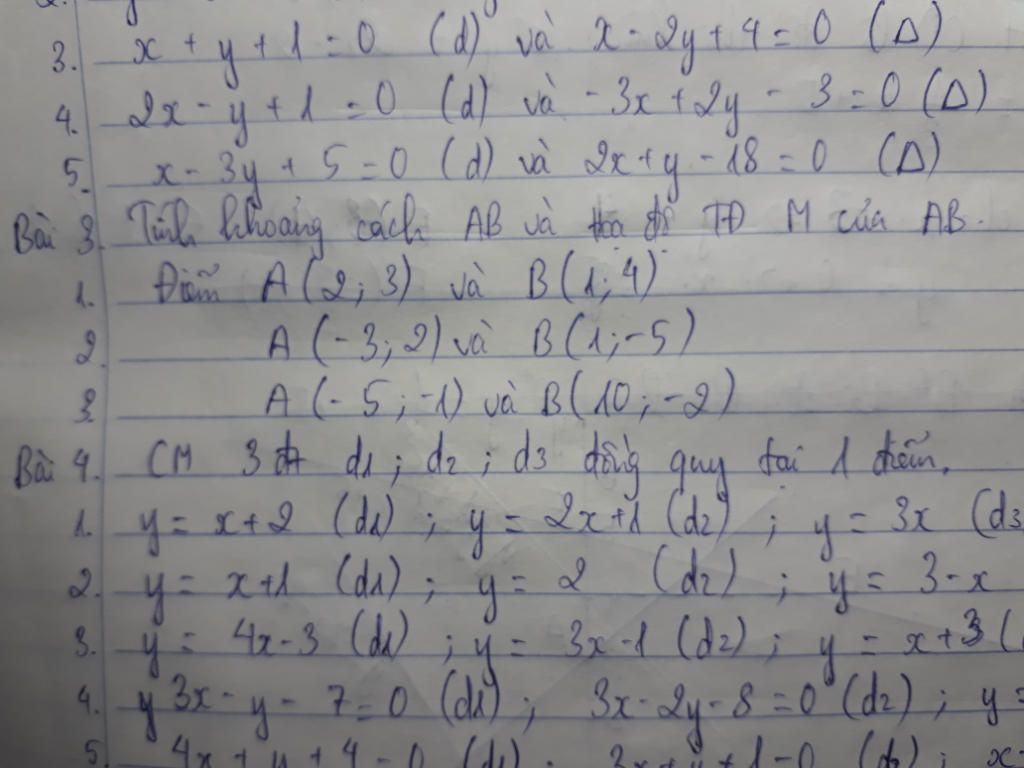 3. x + y + 1 = 0 (d) và x - 2y + 4 = 0 (Δ)
4. 2x - y + 1 = 0 (d) và -3x + 2y - 3 = 0 (Δ)
5. x - 3y + 5 = 0 (d) và 2x + y - 18 = 0 (Δ)
Bài 3. Tính khoảng cách AB và tọa độ TĐ M của AB.
1. Điểm A(2; 3) và B(1; 4)
2. A(-3; 2) và B(1; -5)
3. A(-5; -1) và B(10; -2)
Bài 4. CM 3 đt d1; d2; d3 đồng quy tại 1 điểm.
1. y = x + 2 (d1); y = 2x + 1 (d2); y = 3x (d3
2. y = x + 1 (d1); y = 2 (d2); y = 3 - x
3. y = 4x - 3 (d1); y = 3x - 1 (d2); y = x + 3 (
4. y 3x - y - 7 = 0 (d1); 3x - 2y - 8 = 0 (d2); y =
5. 4x + y + 4 = 0 (d1); 3x + y + 1 = 0 (d2); x